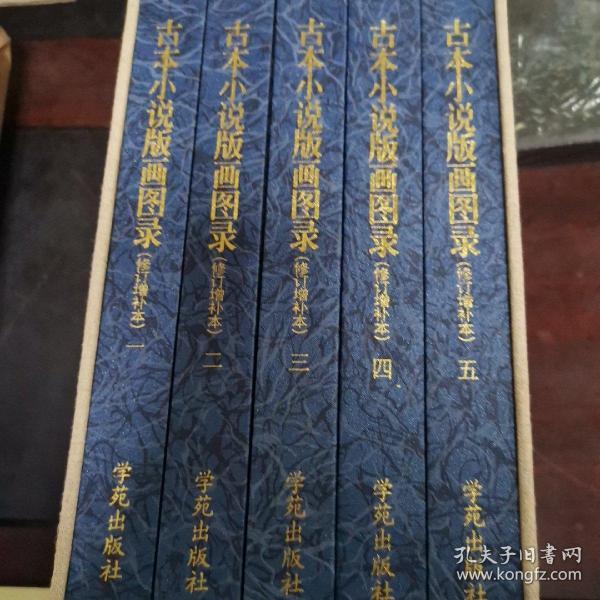 古本小说版画图录(修订增补本)一
学苑出版社
古本小说版画图录(修订增补本)二
学苑出版社
古本小说版画图录(修订增补本)三
学苑出版社
古本小说版画图录(修订增补本)四
学苑出版社
古本小说版画图录(修订增补本)五
学苑出版社
孔夫子旧书网
www.kongfz.com